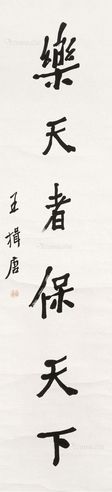 樂天者保天下
王揖唐